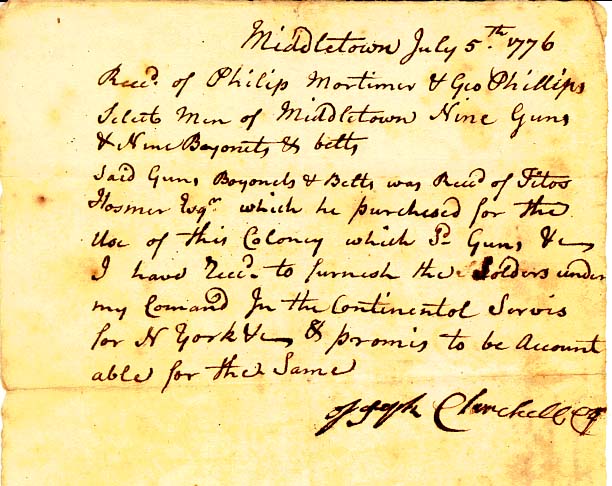 Middletown July 5th 1776
Recd. of Philip Mortimer & Geo Phillips
Select Men of Middletown Nine Guns
& Nine Bayonets & belts
Said Guns Bayonets & Belts was Recd of Titos
Hosmer Esqr. which he purchesed for the
Use of this Coloney which Sd. Guns &c
I have Recd. to furnish the Solders under
my Comand In the Continentol Servis
for N York &c & promis to be Account
able for the Same
Joseph Churchell